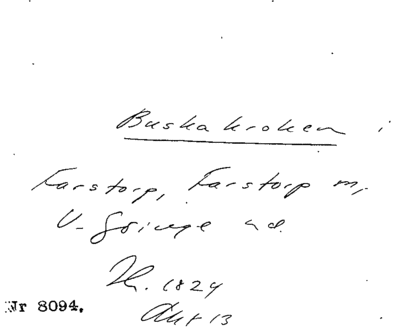 Buskakroken i
Farstorp, Farstorp m,
V-Göinge hd.
Th. 1824
Akt 13
Nr 8094.